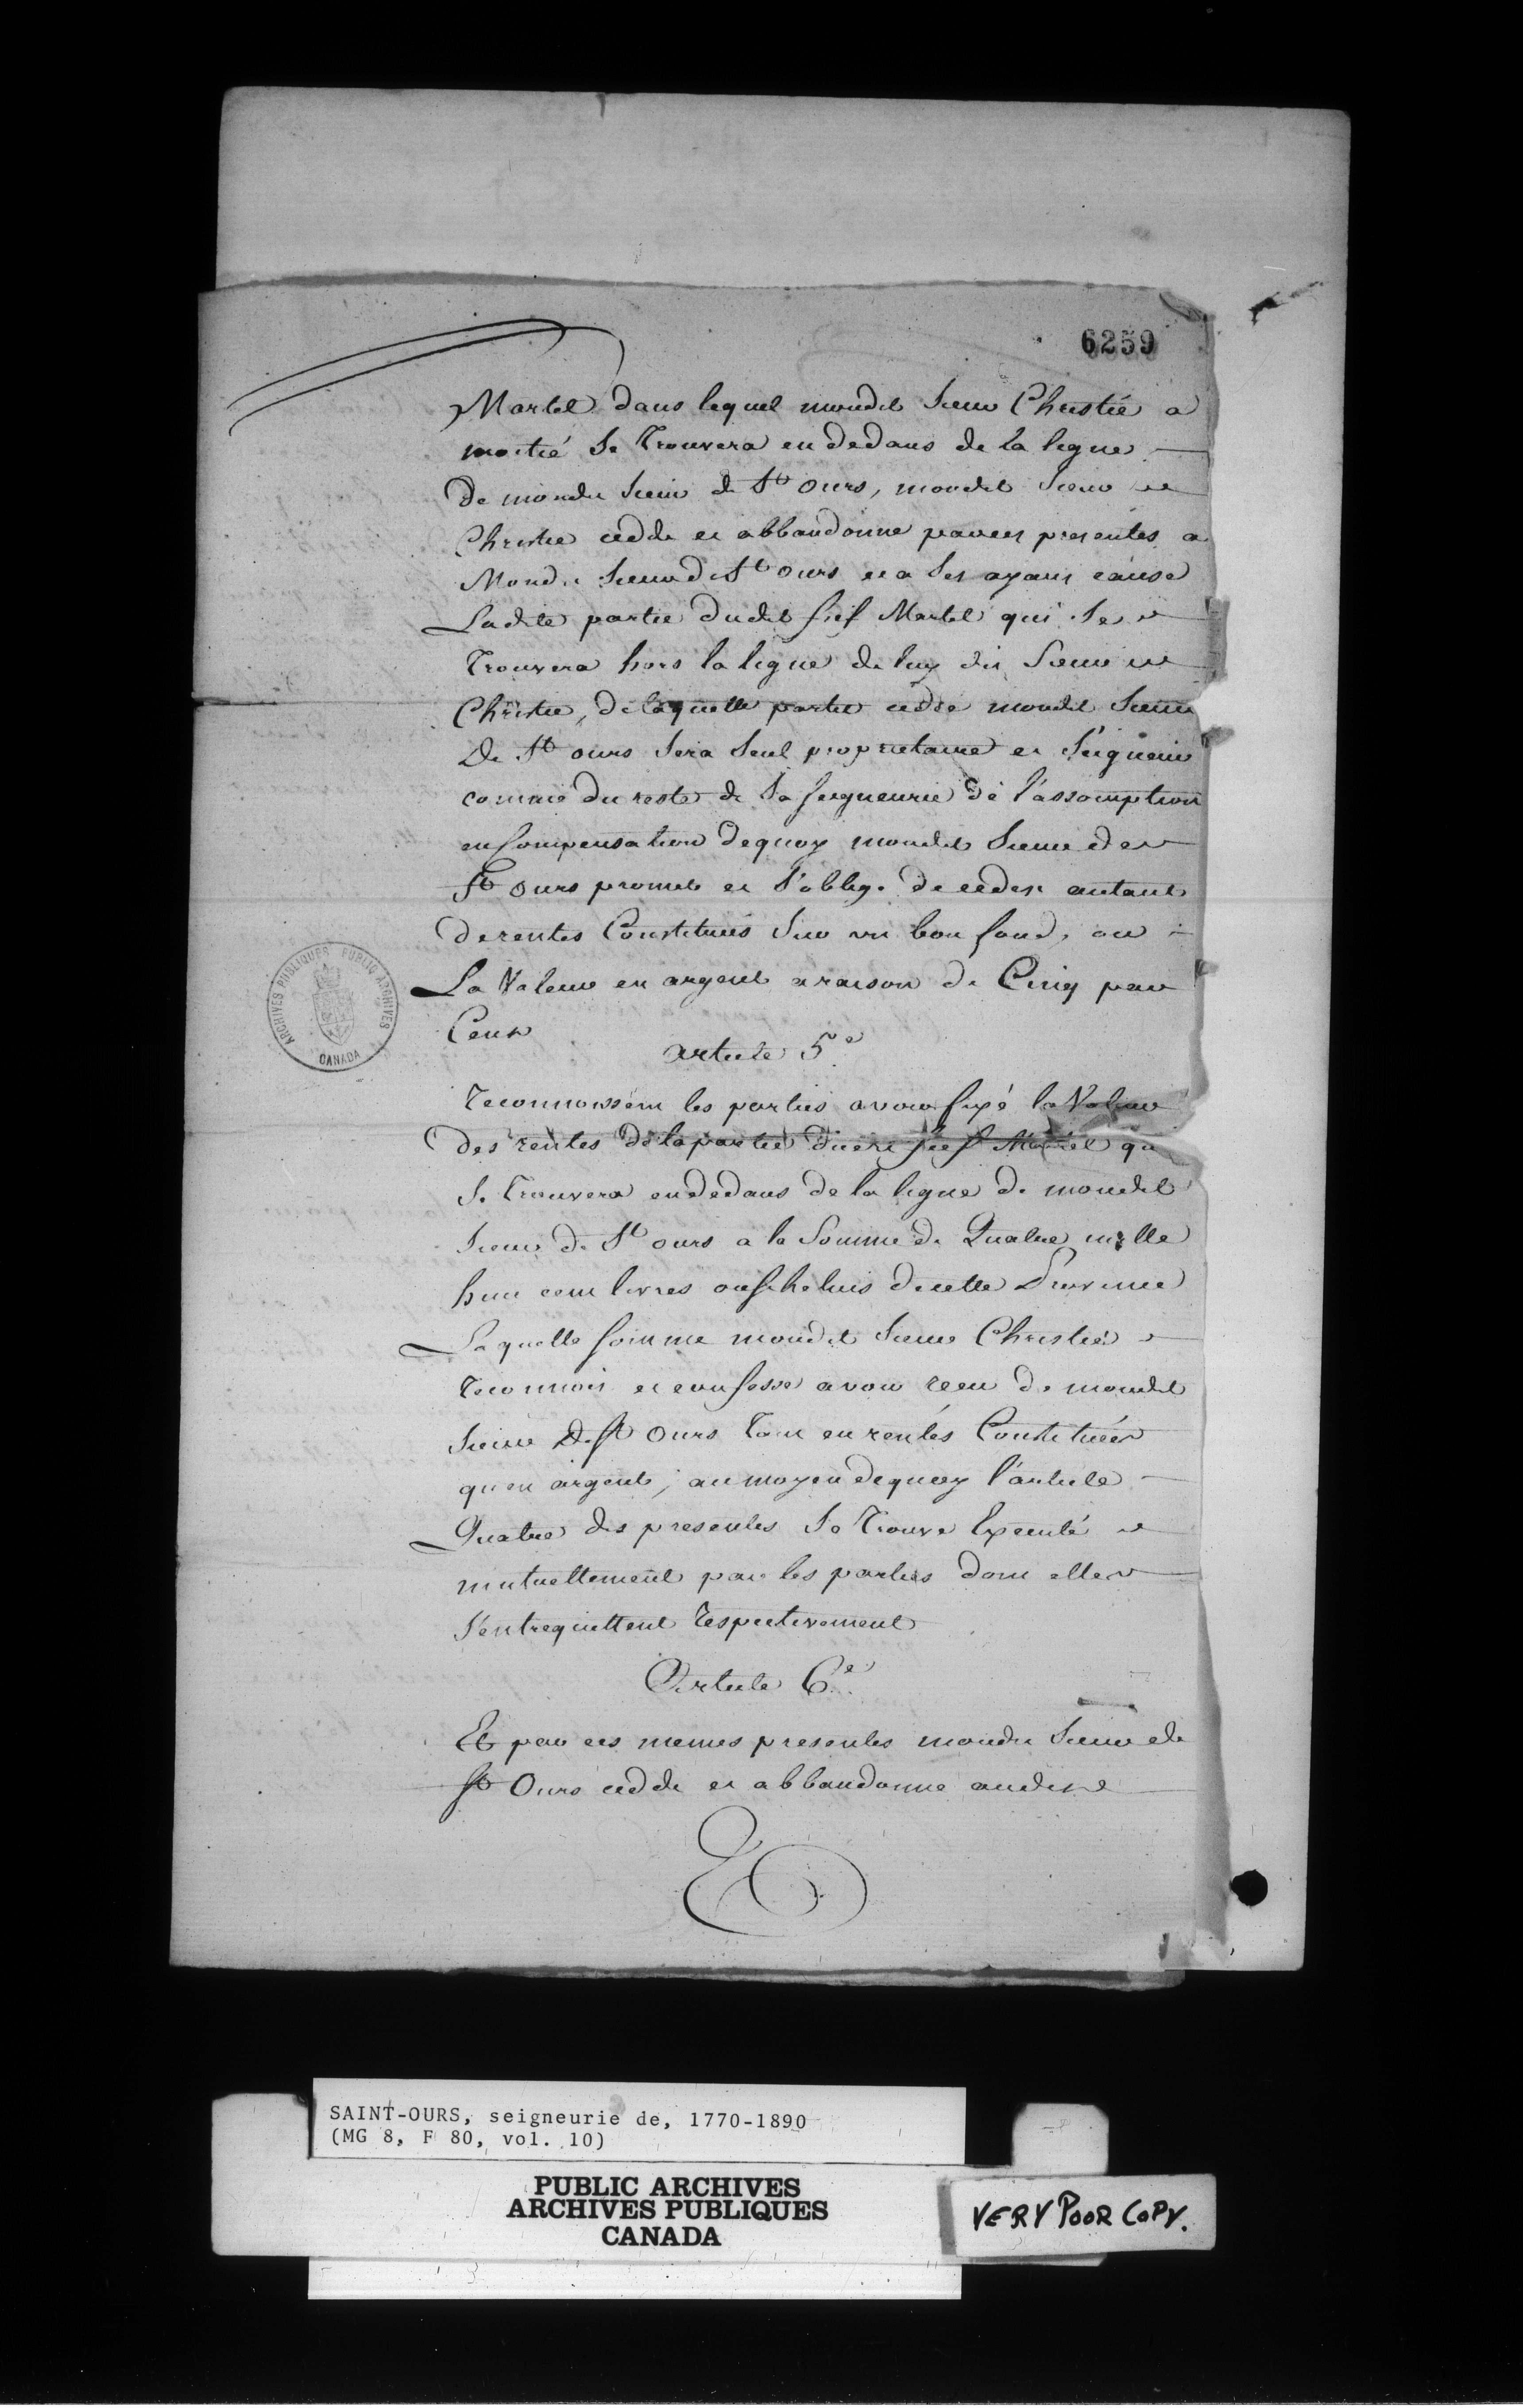 6259
Martel dans lequel mondit Sieur Christie a
moitié Se Trouvera en dedans de la ligne
De mondit Sieur de St Ours, mondit Sieur
Christie cedde et abbandonne par ces presentes a
Mondit Sieur de St Ours et a Ses ayans cause
Ladite partie dudit fief Martel qui Se
Trouvera hors la ligne de luy dit Sieur
Christie, de laquelle partie cedde mondit Sieur
De St ours Sera Seul proprietaire et Seigneur
comme du reste de Sa Seigneurie de l'assomption
en Compensation dequoy mondit Sieur de
St Ours promet et S'oblige de ceder autant
de rentes Constitués Sur un bon fond, ou
La Valeur en argent a raison de Cinq par
Cent
article 5e
Reconnoissent les parties avoir fixé la Valeur
Des rentes de la partie dudit fief Martel qui
Se Trouvera en dedans de la ligne de mondit
Sieur de St ours a la Somme de Quatre mille
huit cent livres ou schelins de cette Province
Laquelle Somme mondit Sieur Christie
Reconnoit et confesse avoir reçu de mondit
Sieur De St Ours Tant en rentes Constituées
qu'en argent, au moyen dequoy l'article
Quatre des presentes Se Trouve Executé
mutuellement par les parties dont elles
S'entrequittent Respectivement
Article 6e
Et par ces memes presentes mondit Sieur de
St Ours cedde et abbandonne audit
ARCHIVES PUBLIQUES PUBLIC ARCHIVES
CANADA
SAINT-OURS, seigneurie de, 1770-1890
(MG 8, F 80, vol. 10)
PUBLIC ARCHIVES
ARCHIVES PUBLIQUES
CANADA
VERY POOR COPY.